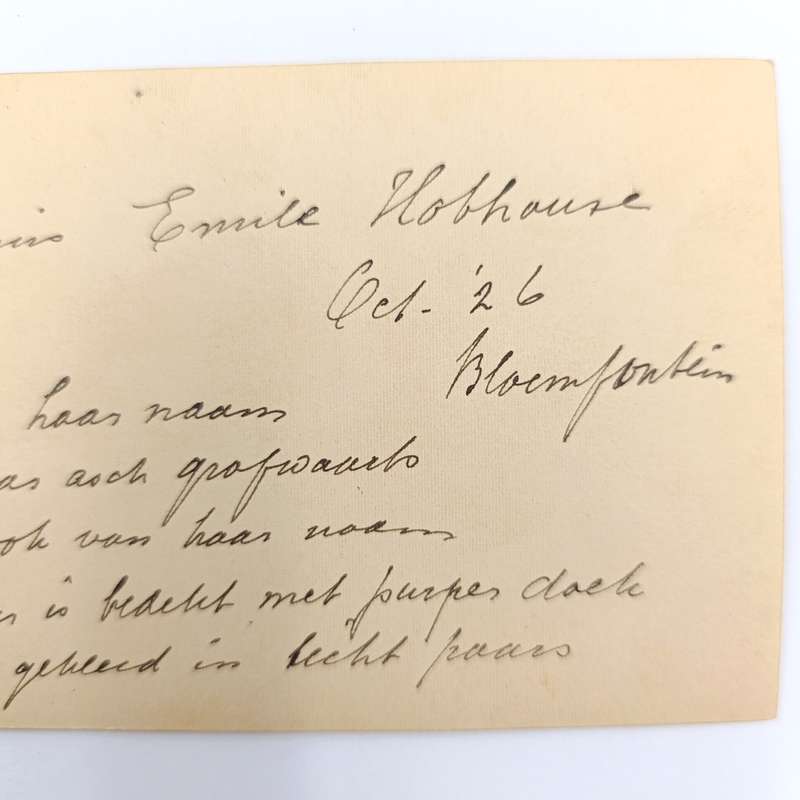 Emile Hobhouse
Oct. '26
Bloemfontein
haar naam
as asch grafwaarts
ook van haar naam
is bedekt met purper doek
gekleed in licht paars